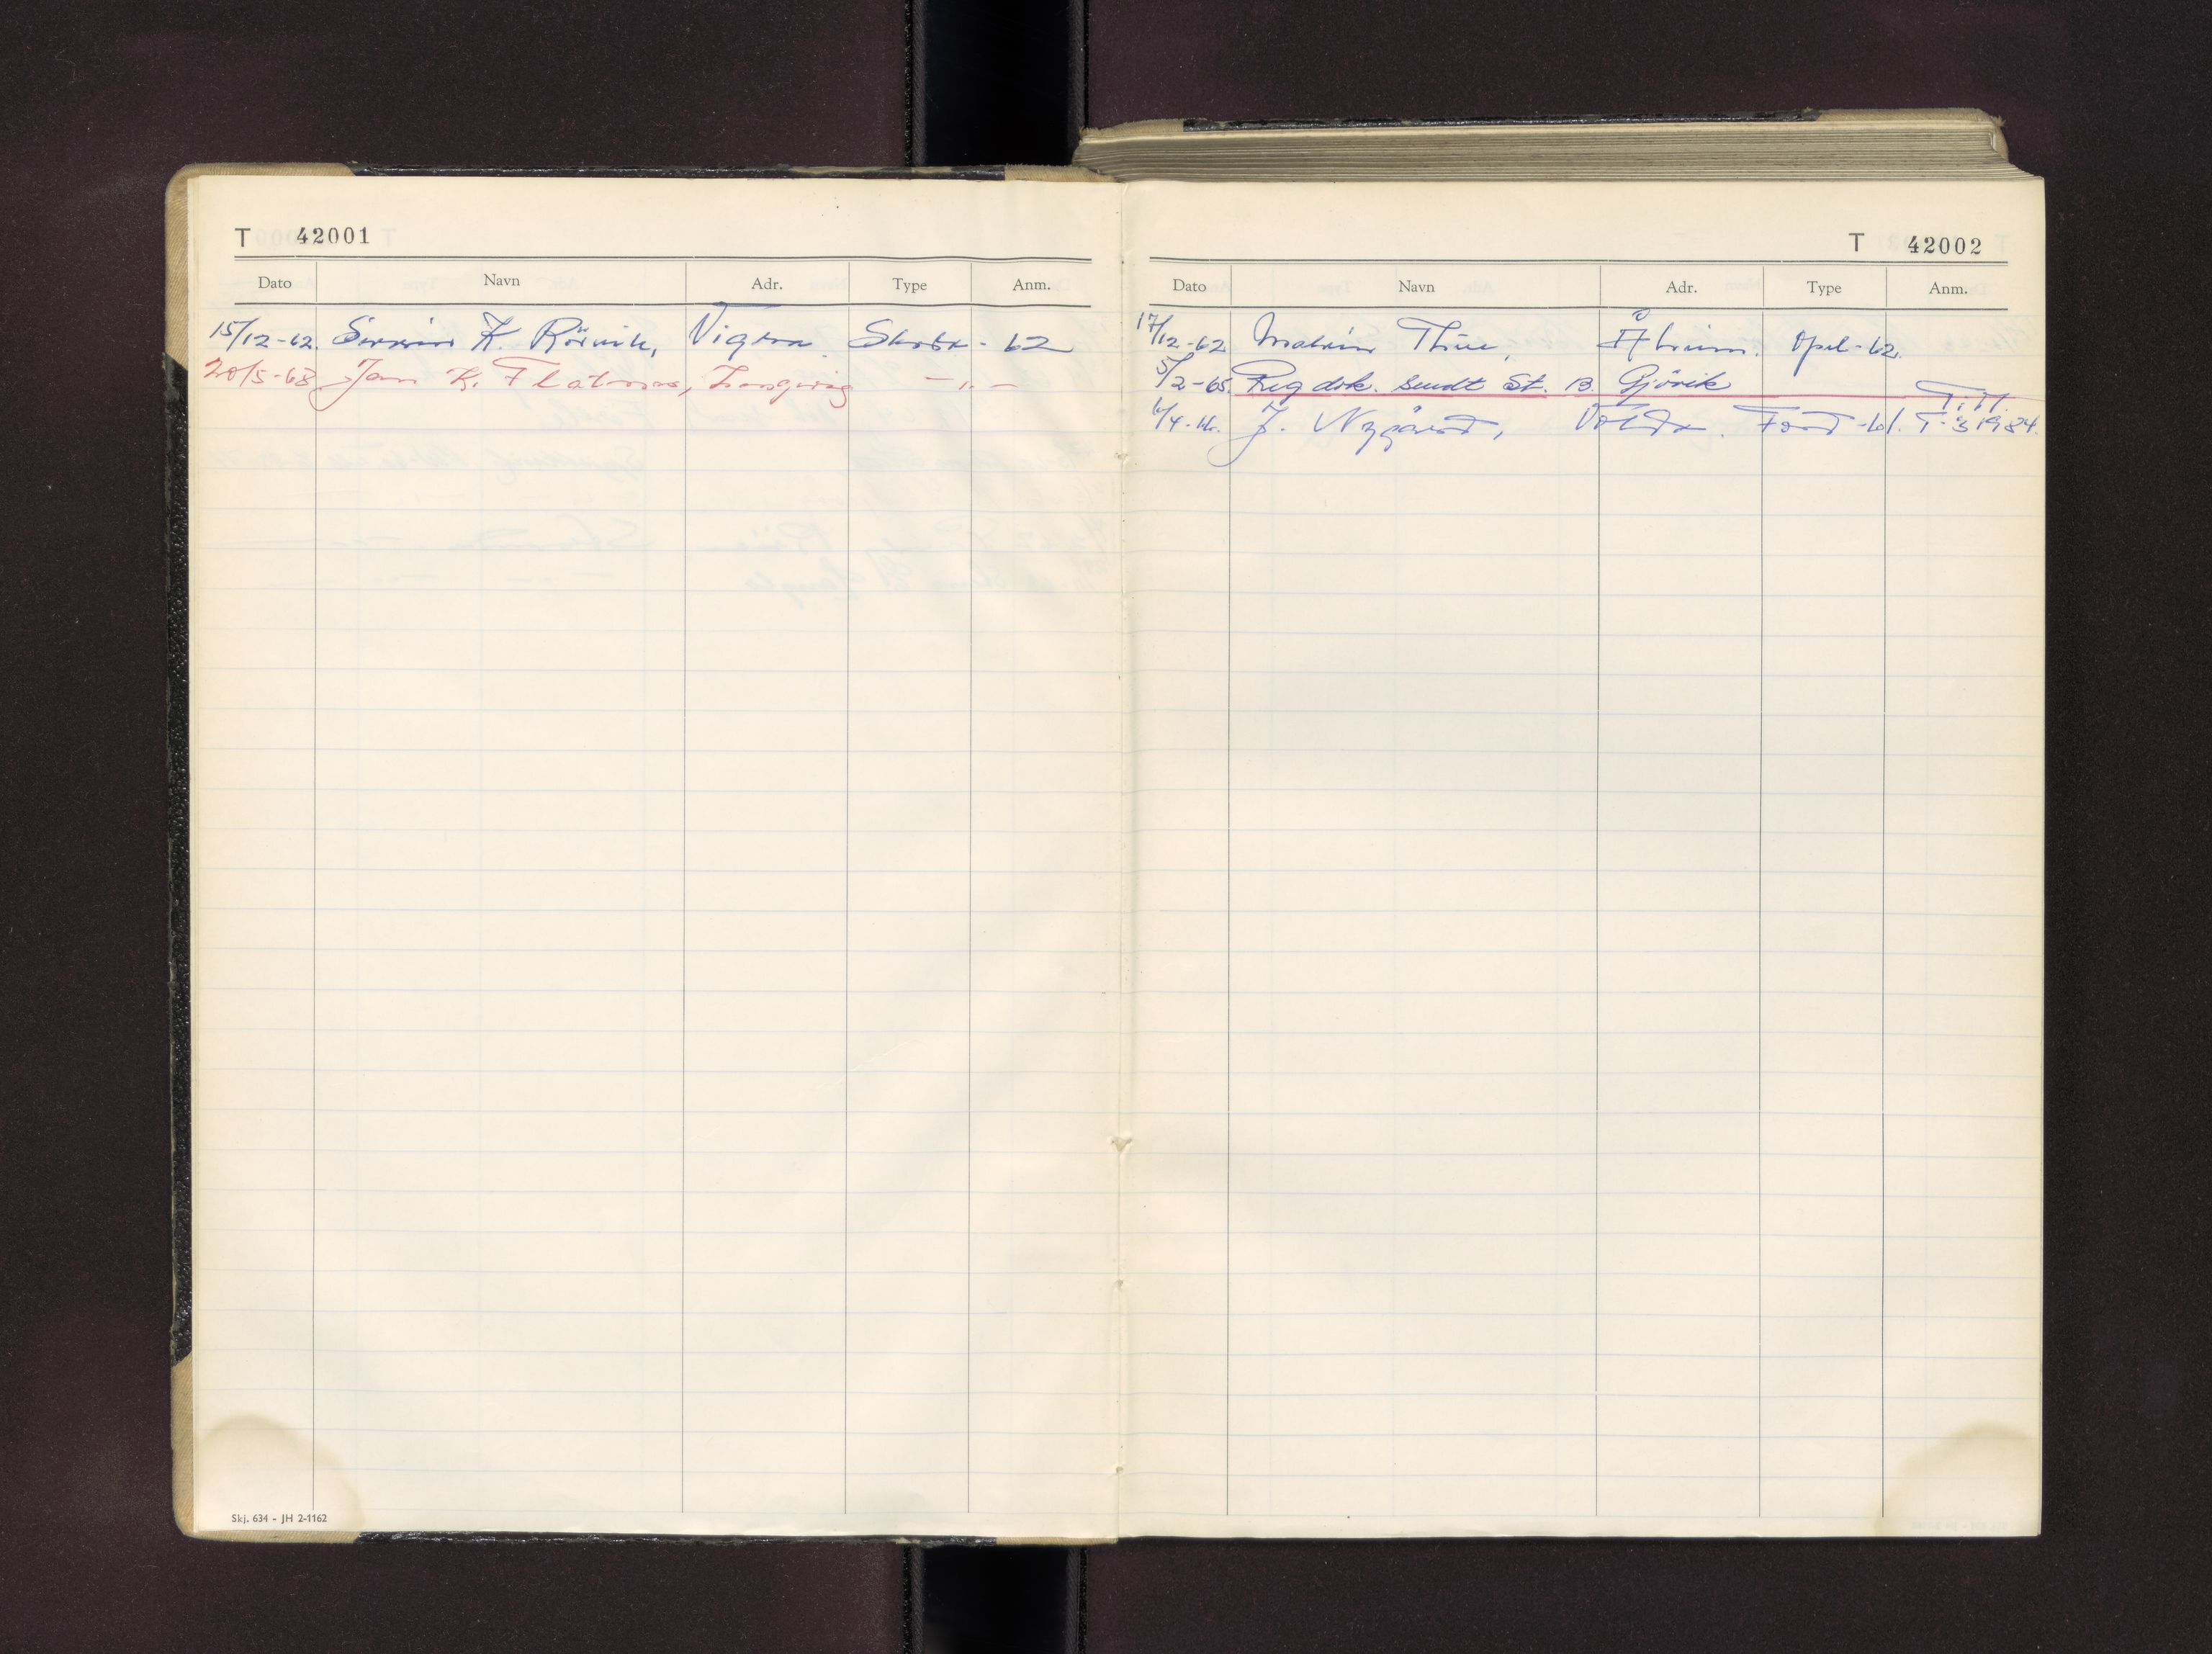 T 42001
Dato Navn Adr. Type Anm.
15/12-62. Severin K. Rörvik, Vigra. Skoda - 62
20/5-63 Jan K. Flatmoe, Longvag —"—
Skj. 634 - JH 2-1162
T 42002
Dato Navn Adr. Type Anm.
17/12-62 Thue, Åheim. Opel-62.
5/2-65. Reg dok. sendt St. B. Gjövik
6/4- J. Nygård, Volda. Ford -61. T.H. T-31984.